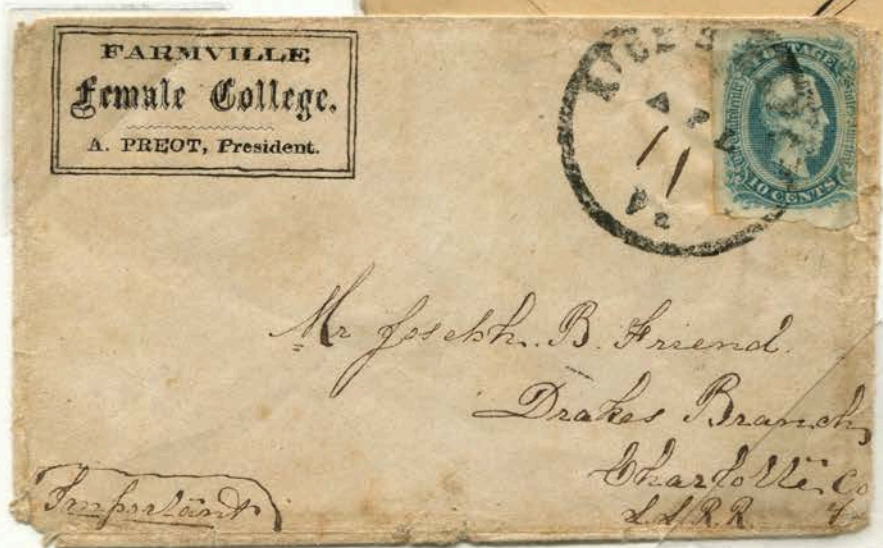 FARMVILLE
Female College.
A. PREOT, President.
RICE'S
AP
11
Va
POSTAGE
10 CENTS
Mr Joseph. B. Friend.
Drakes Branch,
Charlotte, Co
Important